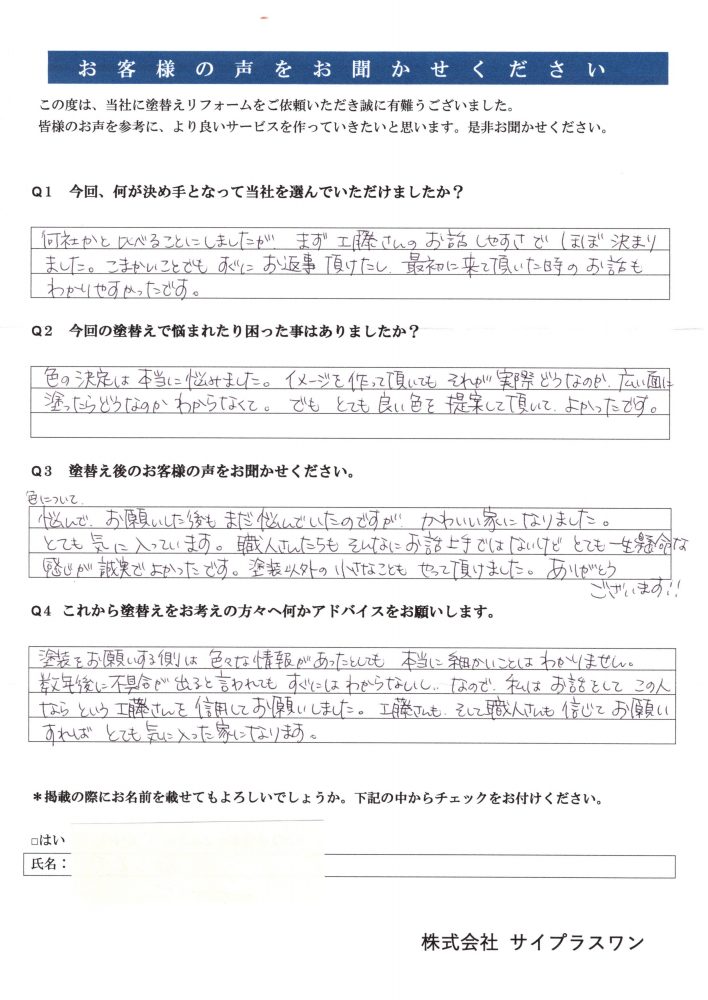 お客様の声をお聞かせください
この度は、当社に塗替えリフォームをご依頼いただき誠に有難うございました。
皆様のお声を参考に、より良いサービスを作っていきたいと思います。是非お聞かせください。
Q1 今回、何が決め手となって当社を選んでいただけましたか？
何社かと比べることにしましたが、まず工藤さんのお話しやすさでほぼ決まり
ました。こまかいことでもすぐにお返事頂けたし、最初に来て頂いた時のお話も
わかりやすかったです。
Q2 今回の塗替えで悩まれたり困った事はありましたか？
色の決定は本当に悩みました。イメージを作って頂いてもそれが実際どうなのか、広い面に
塗ったらどうなのかわからなくて。でもとても良い色を提案して頂いて、よかったです。
Q3 塗替え後のお客様の声をお聞かせください。
色について、
悩んで、お願いした後もまだ悩んでいたのですが、かわいい家になりました。
とても気に入っています。職人さんたちもそんなにお話上手ではないけどとても一生懸命な
感じが誠実でよかったです。塗装以外の小さなこともやって頂けました。ありがとう
ございます!!
Q4 これから塗替えをお考えの方々へ何かアドバイスをお願いします。
塗装をお願いする側は色々な情報があったとしても本当に細かいことはわかりません。
数年後に不具合が出ると言われてもすぐにはわからないし‥なので、私はお話をしてこの人
ならという工藤さんを信用してお願いしました。工藤さんも、そして職人さんも信じてお願い
すればとても気に入った家になります。
＊掲載の際にお名前を載せてもよろしいでしょうか。下記の中からチェックをお付けください。
□はい
氏名：
株式会社 サイプラスワン